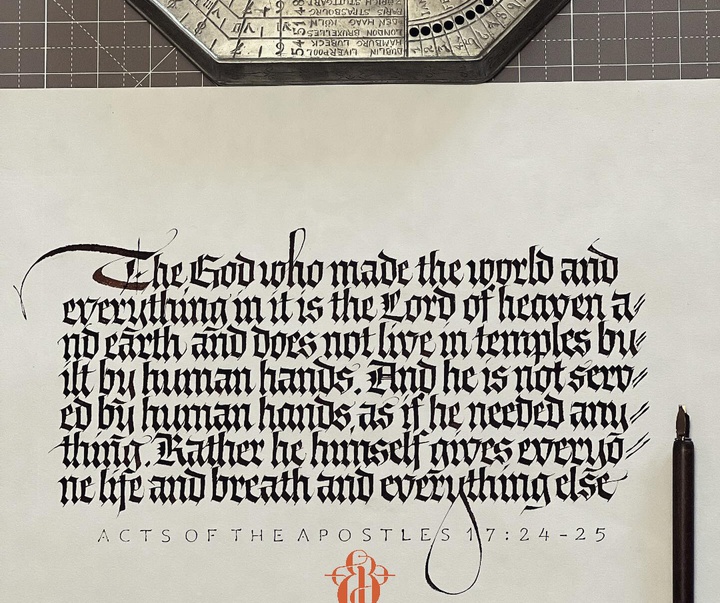 ZÜRICH STUTTGART
PARIS STRASBOURG
DEN HAAG KÖLN
LONDON BRUXELLES
HAMBURG LÜBECK
DUBLIN LIVERPOOL
The God who made the world and
everything in it is the Lord of heaven a⸗
nd earth and does not live in temples bu⸗
ilt by human hands. And he is not serv⸗
ed by human hands, as if he needed any⸗
thing. Rather he himself gives everyo⸗
ne life and breath and everything else
ACTS OF THE APOSTLES 17:24-25